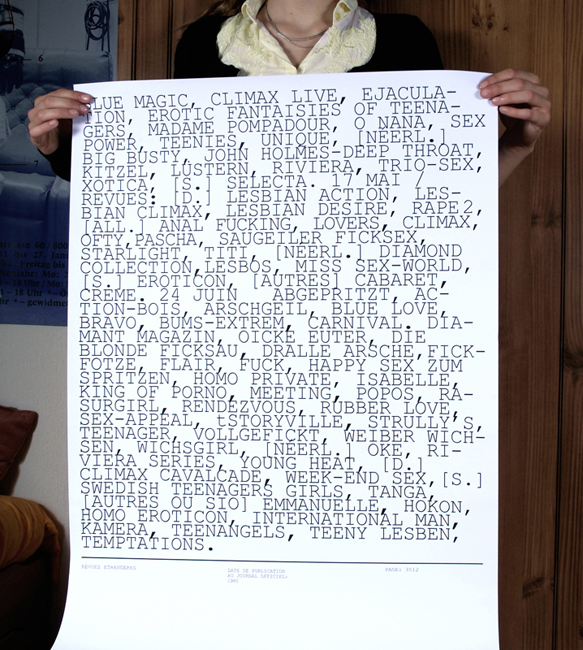 BLUE MAGIC, CLIMAX LIVE, EJACULA-
TION, EROTIC FANTAISIES OF TEENA-
GERS, MADAME POMPADOUR, O NANA, SEX
POWER, TEENIES, UNIQUE, [NEERL.]
BIG BUSTY, JOHN HOLMES-DEEP THROAT,
KITZEL, LUSTERN, RIVIERA, TRIO-SEX,
XOTICA, [S.] SELECTA. 17 MAI /
REVUES: [D.] LESBIAN ACTION, LES-
BIAN CLIMAX, LESBIAN DESIRE, RAPE2,
[ALL.] ANAL FUCKING, LOVERS, CLIMAX,
OFTY,PASCHA, SAUGEILER FICKSEX,
STARLIGHT, TITI, [NEERL.] DIAMOND
COLLECTION,LESBOS, MISS SEX-WORLD,
[S.] EROTICON, [AUTRES] CABARET,
CREME. 24 JUIN ABGEPRITZT, AC-
TION-BOIS, ARSCHGEIL, BLUE LOVE,
BRAVO, BUMS-EXTREM, CARNIVAL. DIA-
MANT MAGAZIN, OICKE EUTER, DIE
BLONDE FICKSAU, DRALLE ARSCHE,FICK-
FOTZE, FLAIR, FUCK, HAPPY SEX ZUM
SPRITZEN, HOMO PRIVATE, ISABELLE,
KING OF PORNO, MEETING, POPOS, RA-
SURGIRL, RENDEZVOUS, RUBBER LOVE,
SEX-APPEAL, tSTORYVILLE, STRULLY'S,
TEENAGER, VOLLGEFICKT, WEIBER WICH-
SEN, WICHSGIRL, [NEERL.] OKE, RI-
VIERA SERIES, YOUNG HEAT, [D.]
CLIMAX CAVALCADE, WEEK-END SEX,[S.]
SWEDISH TEENAGERS GIRLS, TANGA,
[AUTRES OU SIO] EMMANUELLE, HOKON,
HOMO EROTICON, INTERNATIONAL MAN,
KAMERA, TEENANGELS, TEENY LESBEN,
TEMPTATIONS.
REVUES ETRANGERES
DATE DE PUBLICATION
AU JOURNAL OFFICIEL: